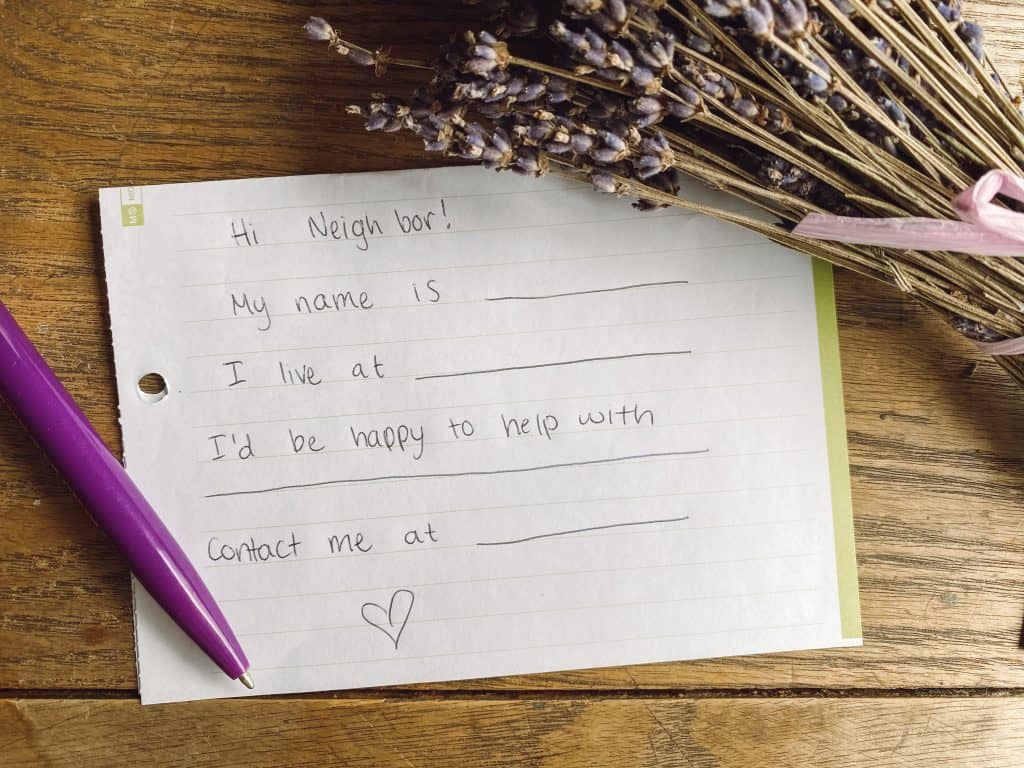 Hi Neighbor!
My name is ____________
I live at ____________
I'd be happy to help with
____________
Contact me at ____________